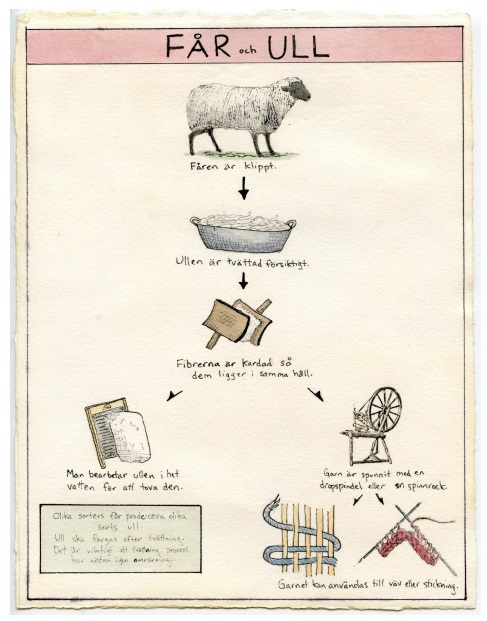 FÅR och ULL
Fåren är klippt.
Ullen är tvättad försiktigt.
Fibrerna är kardad så
dem ligger i samma håll.
Man bearbetar ullen i het
vatten för att tova den.
Garn är spunnit med en
dropspindel eller en spinnrock.
Olika sorters får producera olika
sorts ull.
Ull ska färgas efter tvättning.
Det är viktigt att tvättning process
har nästan ingen omrörning.
Garnet kan användas till väv eller stickning.